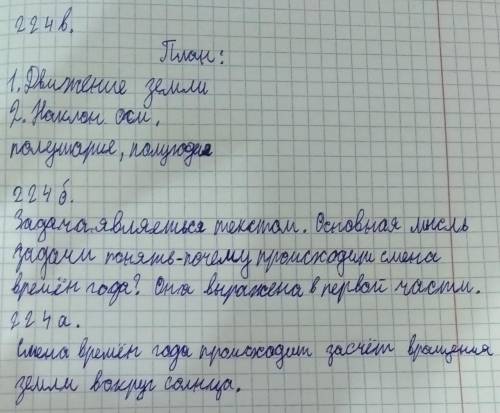 224в.
План:
1. Движение земли
2. Наклон оси.
полушария, полугодие
224б.
Задача является текстом. Основная мысль
задачи понять-почему происходит смена
времён года? Она выражена в первой части.
224а.
Смена времён года происходит засчёт вращения
земли вокруг солнца.